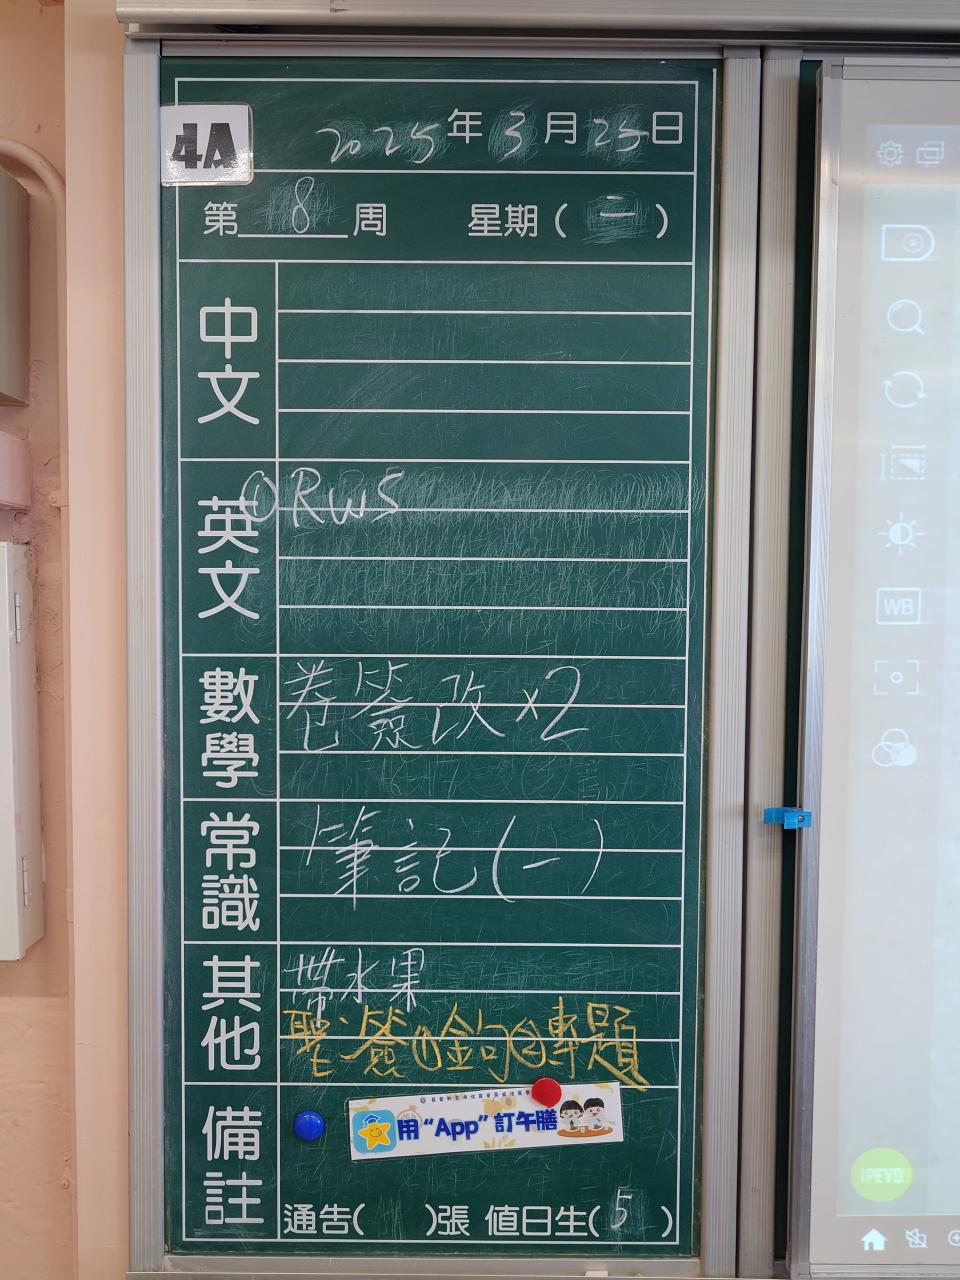 4A
2025年3月25日
第8周 星期(二)
中文
英文
ORW5
數學
卷簽改×2
常識
筆記(一)
其他
帶水果
聖:簽①金句②專題
備註
用“App”訂午膳
通告( )張 值日生(5)
WB
IPEVO